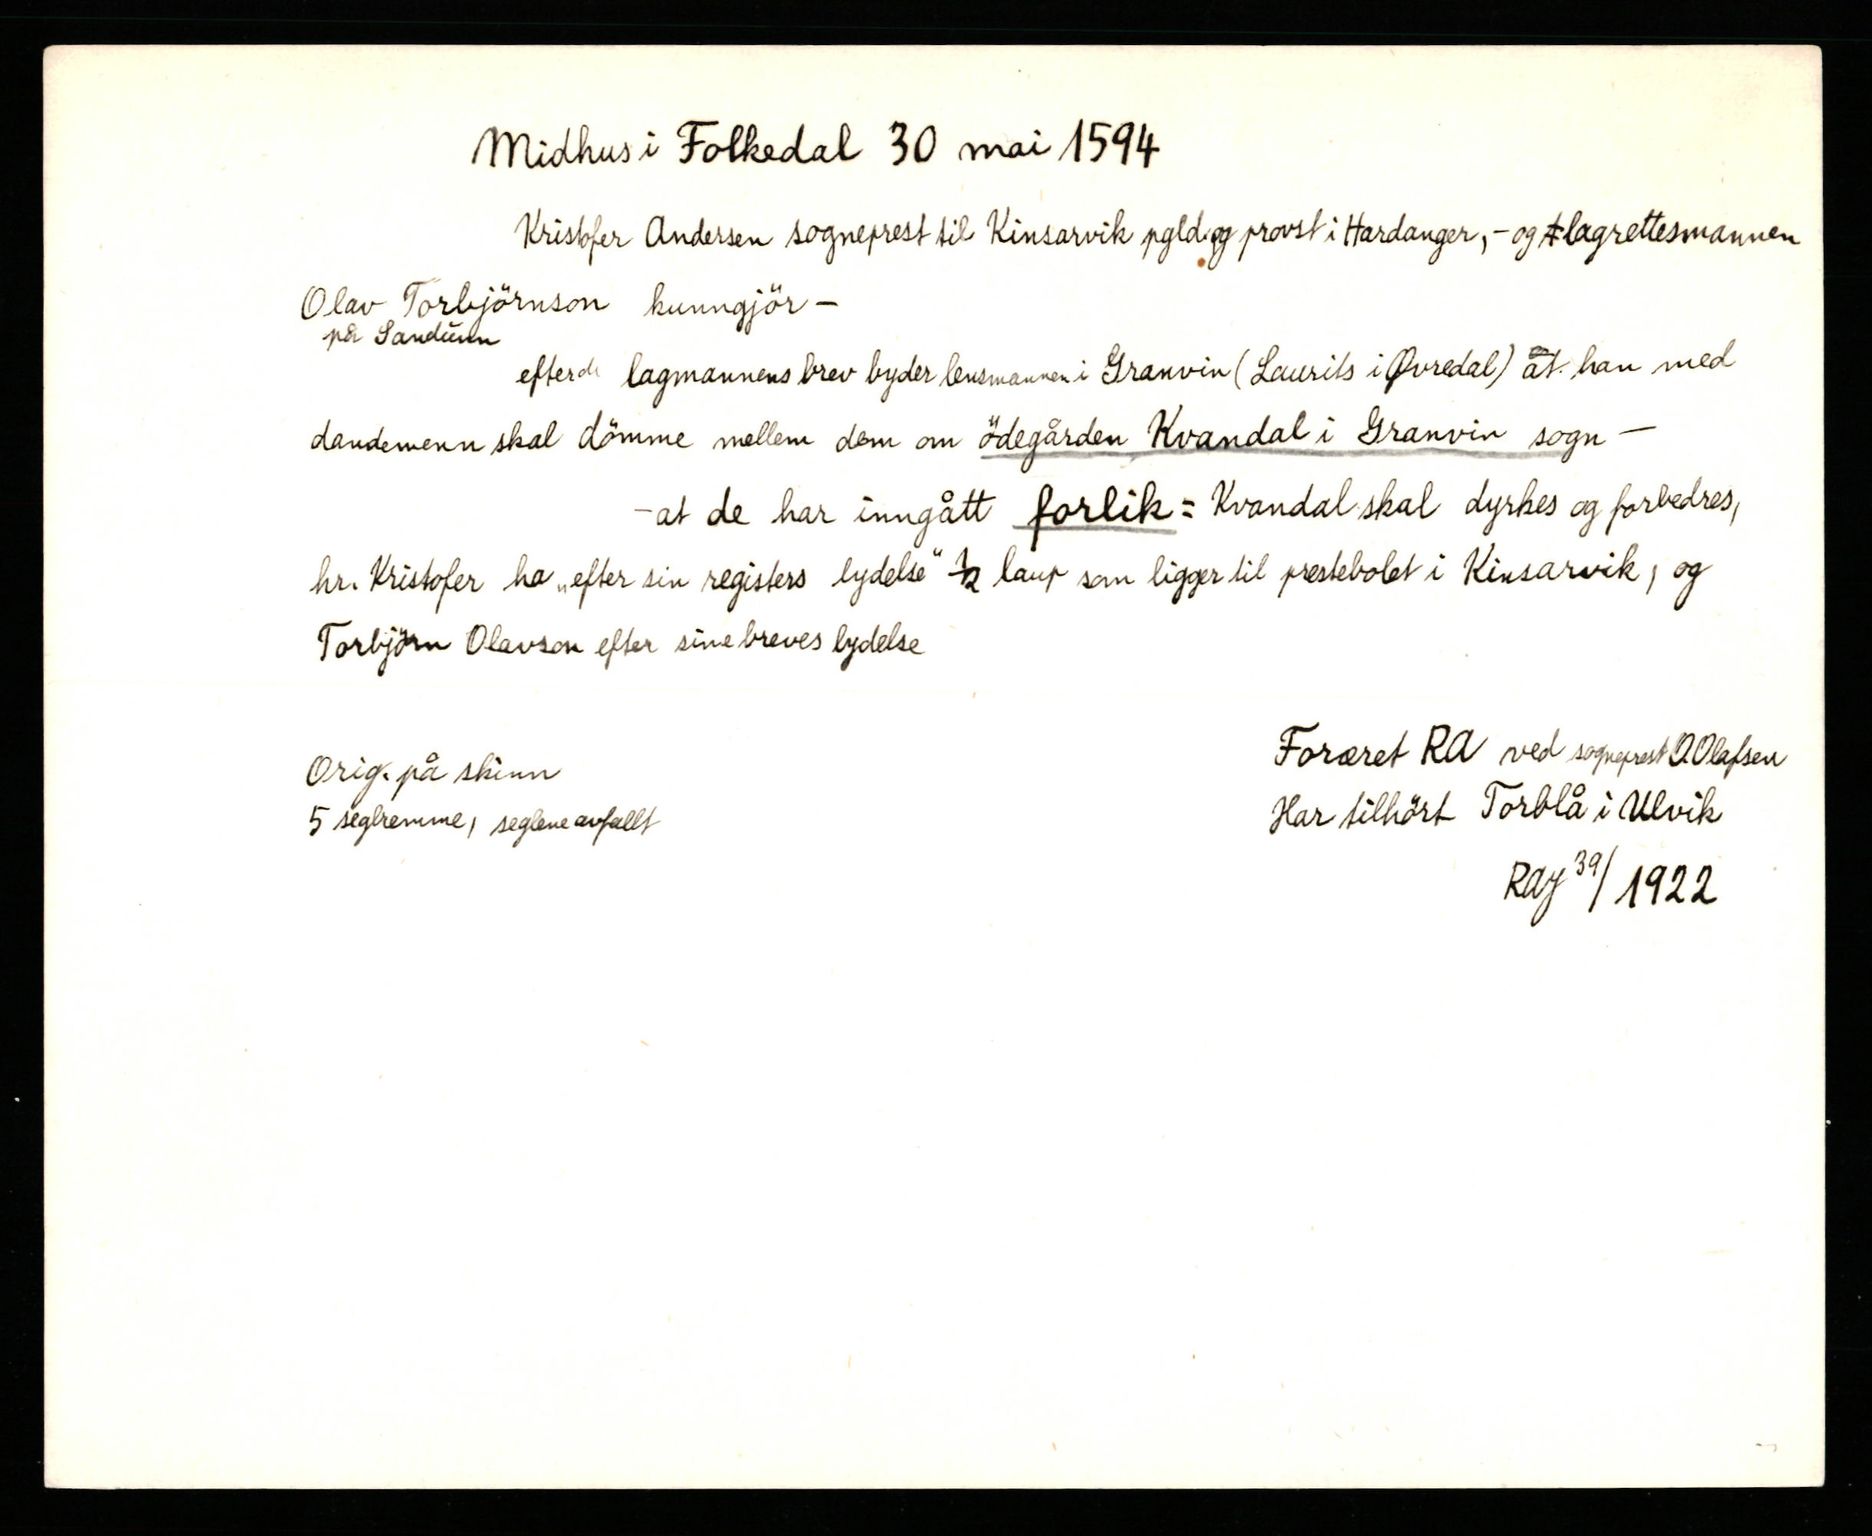 Midhus i Folkedal 30 mai 1594
Kristofer Andersen sogneprest til Kinsarvik pgld. og provst i Hardanger, - og lagrettesmannen
Olav Torbjörnson kunngjör -
på Sanduin
efter lagmannens brev byder lensmannen i Granvin (Laurits i Øvredal) at han med
dandemenn skal dömme mellem dem om ödegården Kvandal i Granvin sogn -
- at de har inngått forlik = Kvandal skal dyrkes og forbedres,
hr. Kristofer ha „efter sin registers lydelse" 1/2 laup som ligger til prestebolet i Kinsarvik, og
Torbjörn Olavson efter sine breves lydelse
Orig. på skinn
5 seglremme, seglene avfallt
Foræret RA ved sogneprest O. Olafsen
Har tilhört Torblå i Ulvik
39/1922